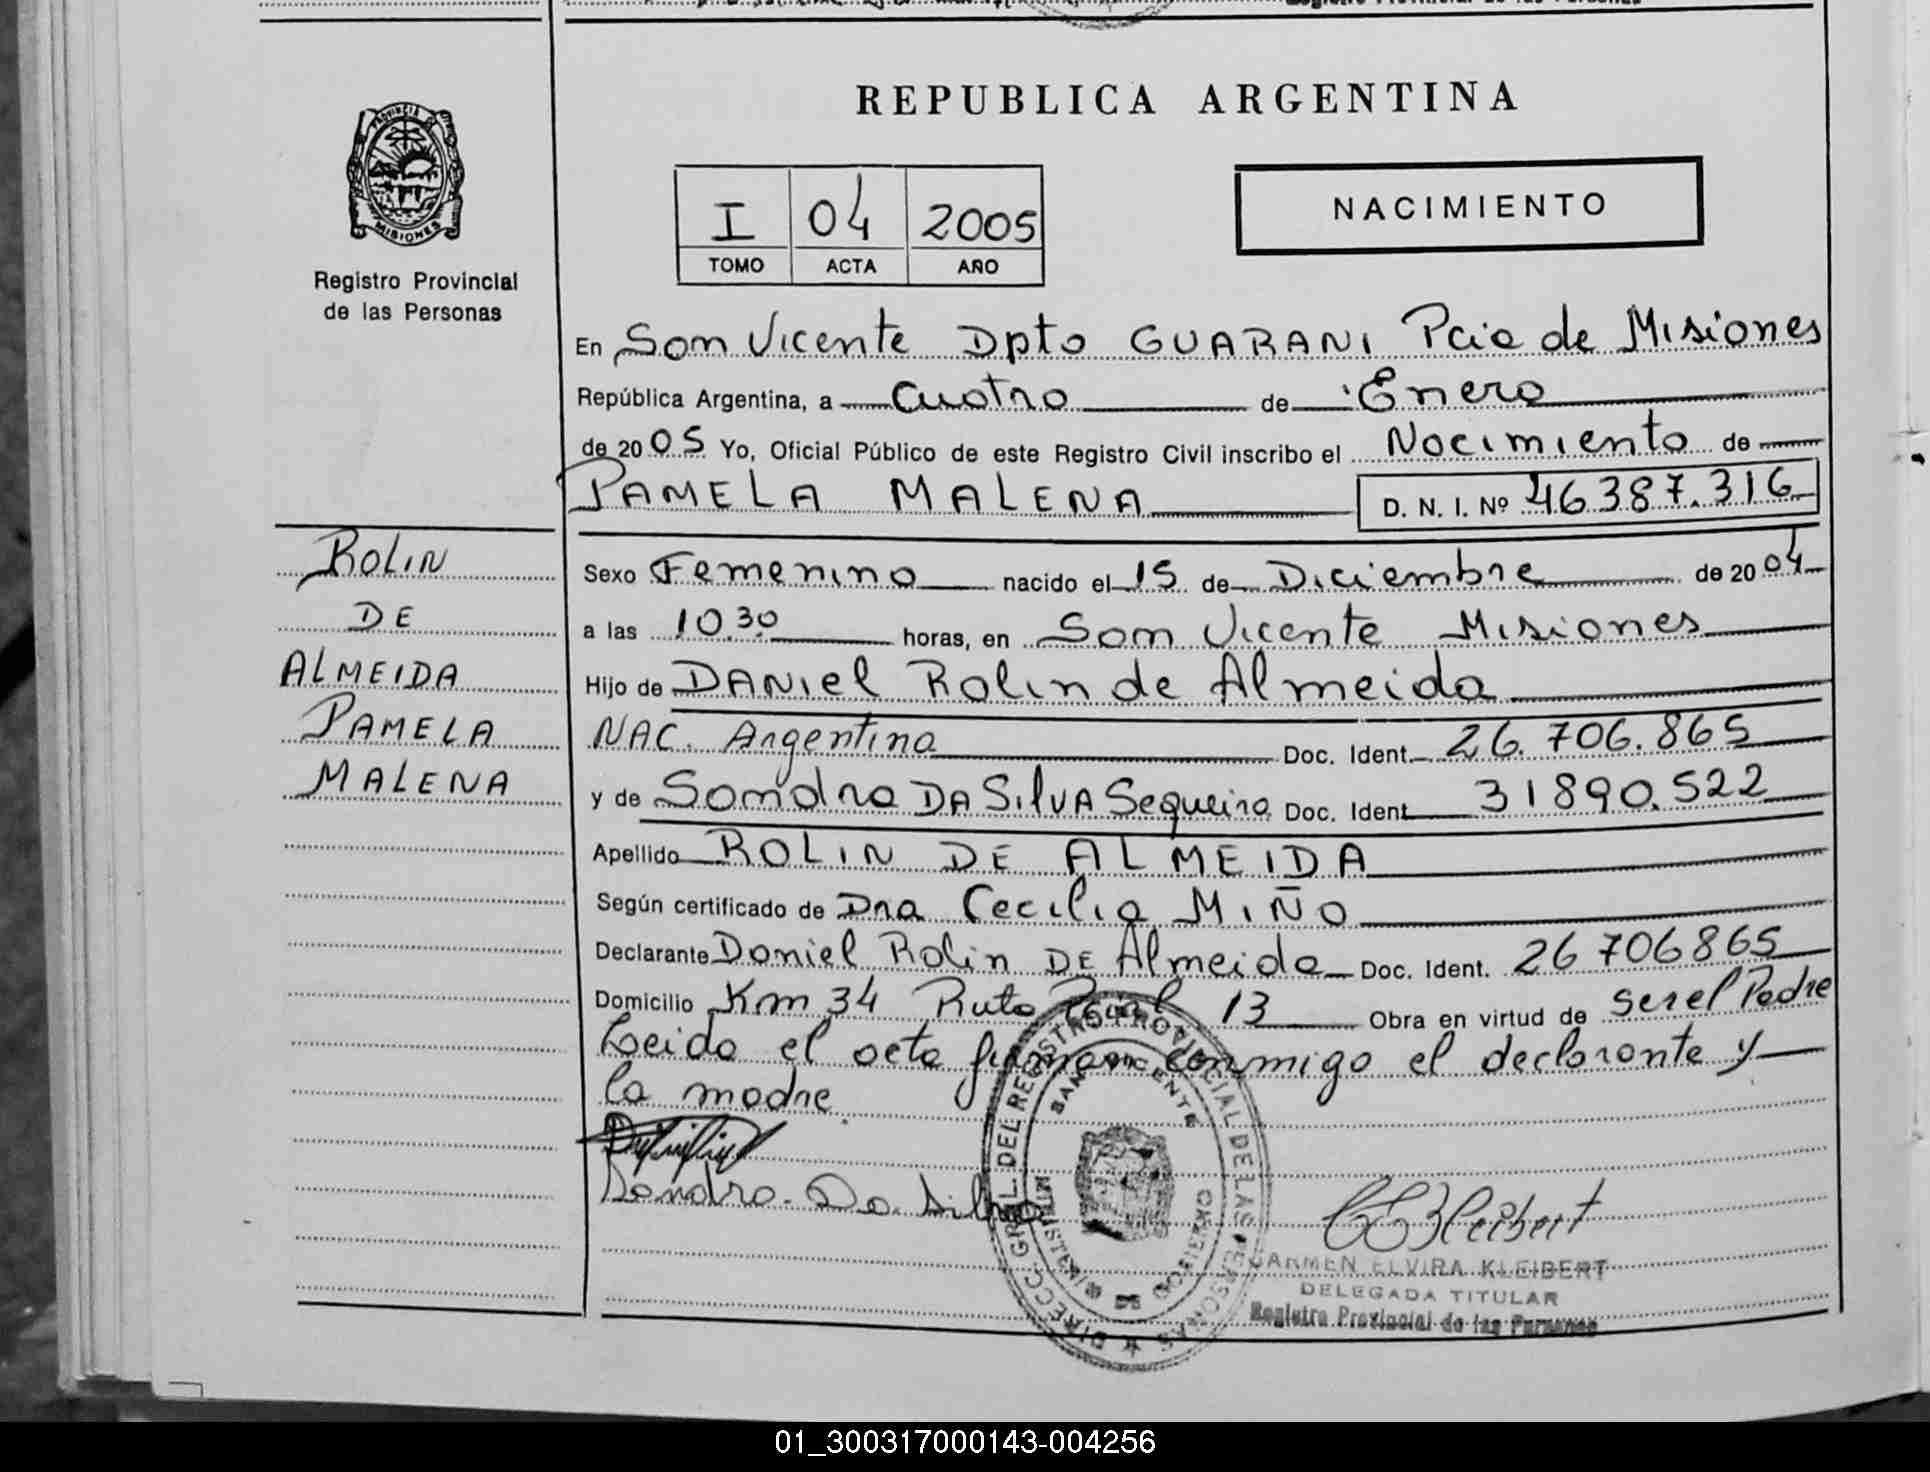 REPUBLICA ARGENTINA
PROVINCIA DE
MISIONES
Registro Provincial
de las Personas
I 04 2005
TOMO ACTA AÑO
NACIMIENTO
En San Vicente Dpto GUARANI Pcia de Misiones
República Argentina, a Cuatro de Enero
de 2005 Yo, Oficial Público de este Registro Civil inscribo el Nacimiento de
PAMELA MALENA D. N. I. Nº 46387.316
Sexo Femenino nacido el 15 de Diciembre de 2004
a las 10.30 horas, en San Vicente Misiones
Hijo de DANIEL Rolin de Almeida
NAC. Argentina Doc. Ident. 26.706.865
y de Sandra DA SILVA Sequeira Doc. Ident. 31890.522
Apellido ROLIN DE ALMEIDA
Según certificado de Dra Cecilia MIÑO
Declarante Daniel Rolin DE Almeida Doc. Ident. 26706865
Domicilio Km 34 Ruta 13 Obra en virtud de ser el Padre
Leida el acta firman conmigo el declarante y
la madre.
Sandra Da Silva
ROLIN
DE
ALMEIDA
PAMELA
MALENA
DIRECC. GRAL. DEL REGISTRO PROVINCIAL DE LAS PERSONAS
SAN VICENTE
MINISTERIO DE GOBIERNO
CARMEN ELVIRA KLEIBERT
DELEGADA TITULAR
Registro Provincial de las Personas
01_300317000143-004256